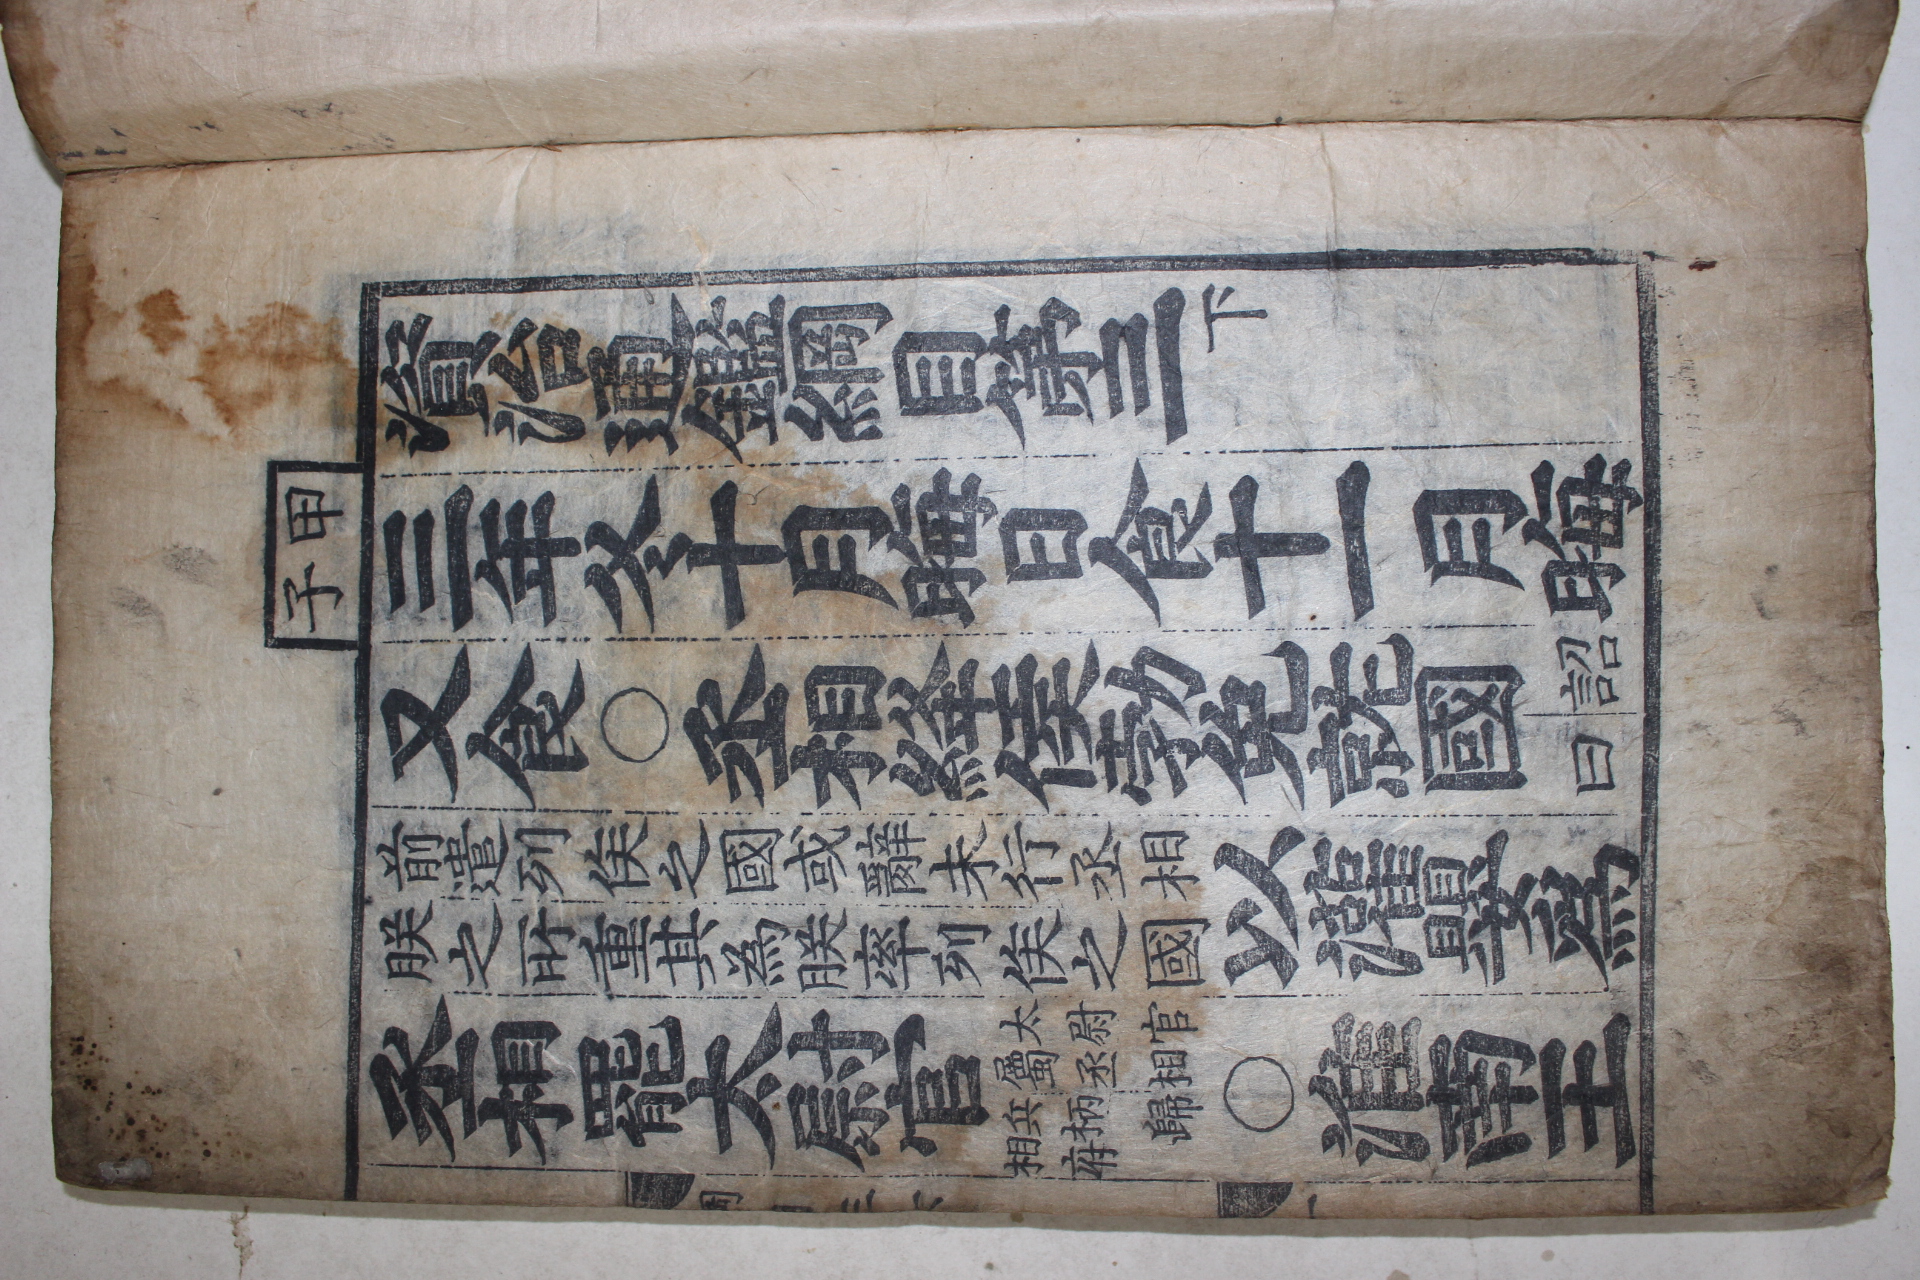 資治通鑑綱目第三下
甲子
三年冬十月晦日食十一月晦
又食○丞相絳侯勃免就國詔曰
前遣列侯之國或辭未行丞相
朕之所重其爲朕率列侯之國
以灌嬰爲
丞相罷太尉官
太尉官
屬丞相
兵柄歸
相府
○淮南王